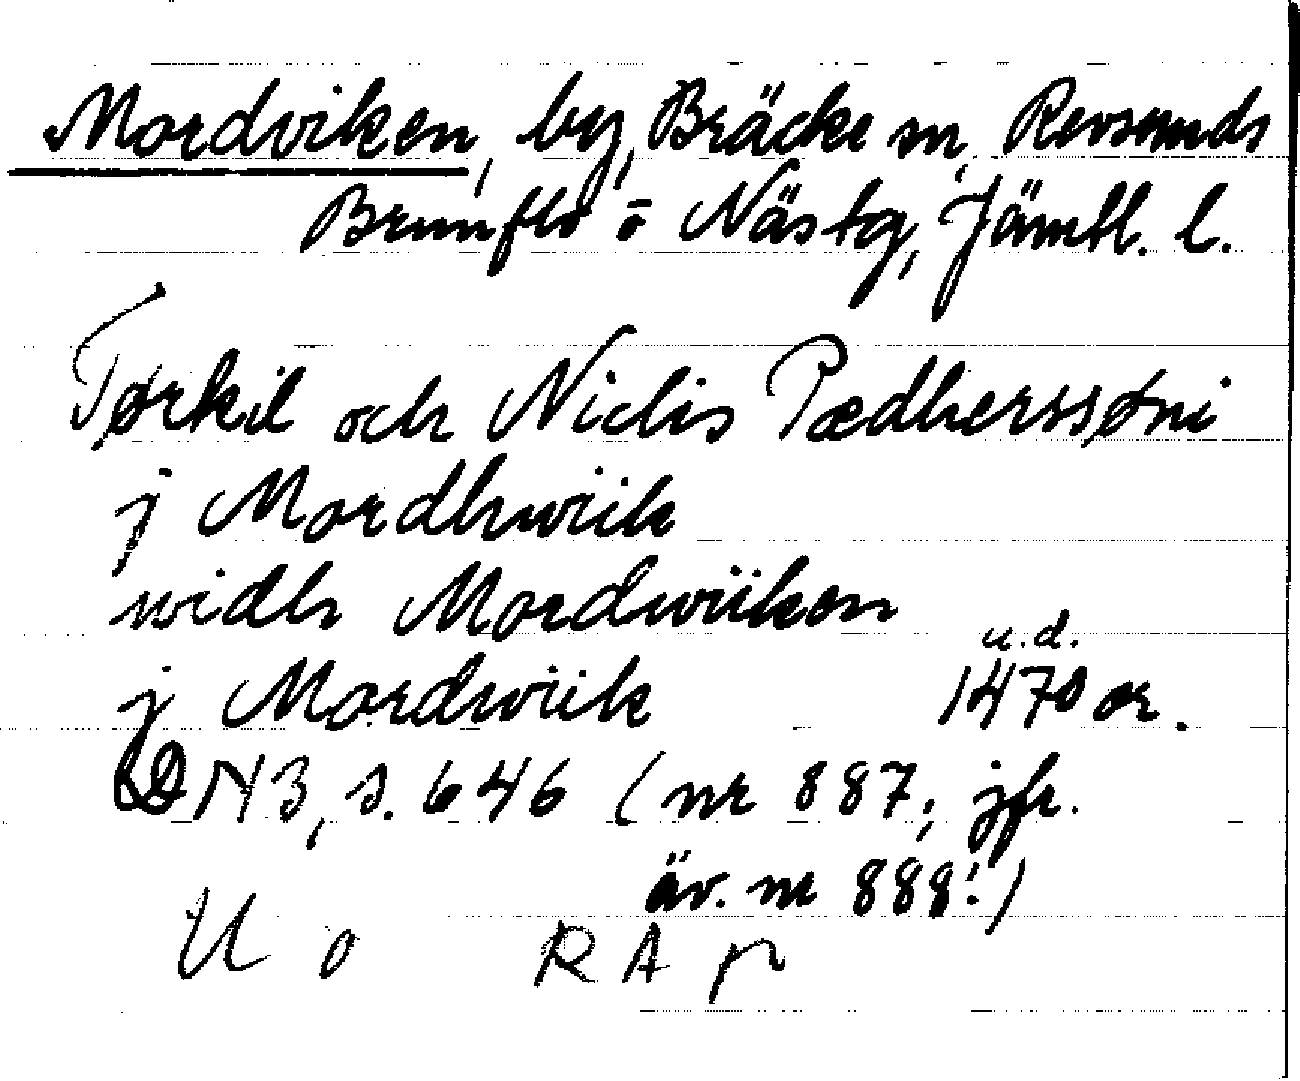 Mordviken, by, Bräcke sn, Revsunds
Brunflo o Nästg, Jämtl. l.
Tørkil och Niclis Pædherssøni
j Mordhwiik
widh Mordwiiken
j Mordwiik u.d. 1470 or.
DN 3, s. 646 (nr 887; jfr.
äv. nr 888!)
U o RA p